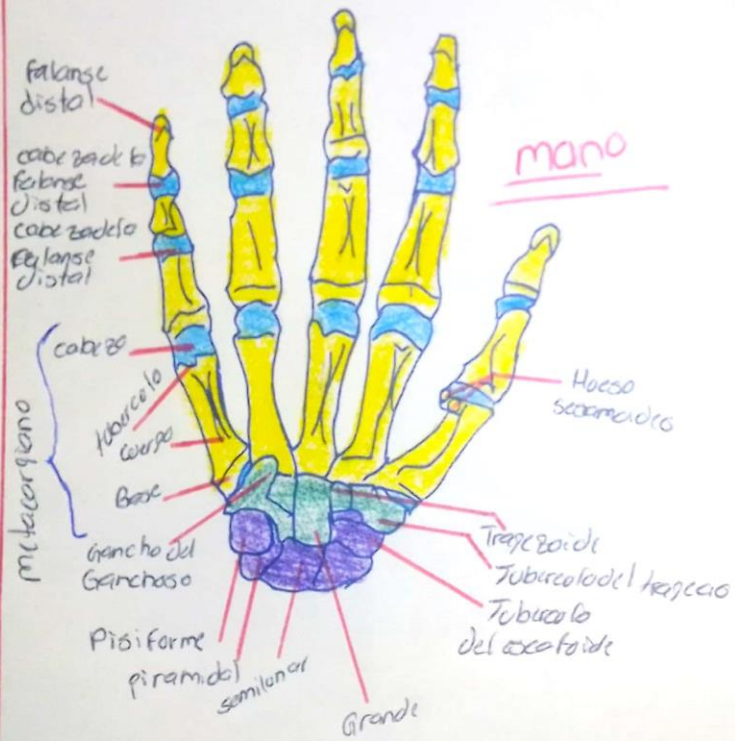 mano
falanse
distal
cabezadela
falanse
distal
cabezadela
falanse
distal
cabeza
tubercolo
cuerpo
Base
metacarpiano
Gancho del
Ganchoso
Pisiforme
piramidal
semilunar
Grande
Hueso
sesamoideo
Trapezoide
Tubercolo del trapecio
Tubercolo
del escafoide